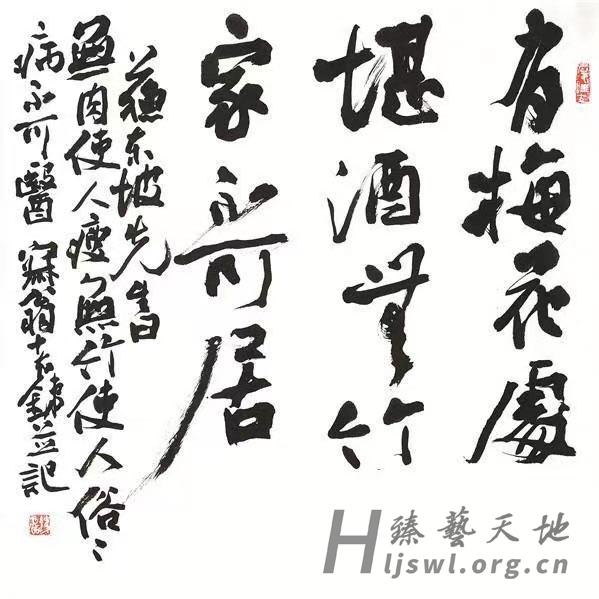 有梅花處
堪酒無竹
家不可居
蘇东坡先生曰
無肉使人瘦無竹使人俗〻
病不可醫 翁 並記
臻藝天地
Hljswl.org.cn